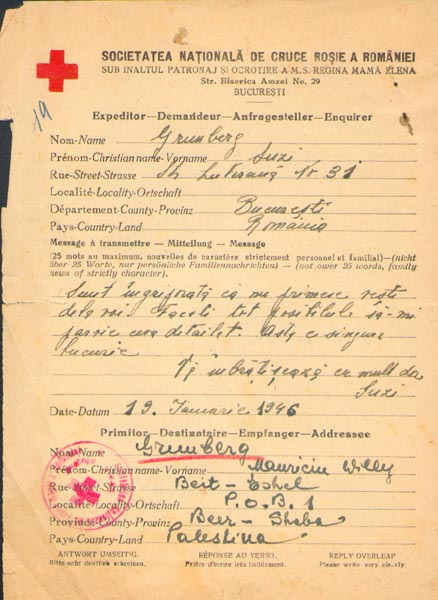 SOCIETATEA NAȚIONALĂ DE CRUCE ROȘIE A ROMÂNIEI
SUB INALTUL PATRONAJ ȘI OCROTIRE A M. S. REGINA MAMĂ ELENA
Str. Biserica Amzei No. 29
BUCUREȘTI
19
Expeditor—Demandeur—Anfragesteller—Enquirer
Nom-Name Grumberg
Prénom-Christian name-Vorname Suzi
Rue-Street-Strasse Str Luterană Nr 31
Localité-Locality-Ortschaft
Département-County-Provinz București
Pays-Country-Land România
Message à transmettre — Mitteilung — Message
(25 mots au maximum, nouvelles de caractère strictement personnel et familial)—(nicht
über 25 Worte, nur persönliche Familiennachrichten) — (not over 25 words, family
news of strictly character).
Sunt îngrijorată că nu primesc vești
dela voi. Faceți tot posibilul să-mi
parvie ceva detaliat. Asta e singura
bucurie
Vă îmbrățișează cu mult dor
Suzi
Date-Datum 19. Ianuarie 1946
Primitor—Destinataire—Empfanger—Addressee
Nom-Name Grumberg
Prénom-Christian name-Vorname Mauriciu Willy
Rue-Street-Strasse Beit-Eshel
Localité-Locality-Ortschaft P.O.B. 1
Province-County-Provinz Beer-Sheba
Pays-Country-Land Palestina
ANTWORT UMSEITIG. RÉPONSE AU VERSO. REPLY OVERLEAF
Bitte sehr deutlich schreiben. Prière d'écrire très lisiblement. Please write very clearly.